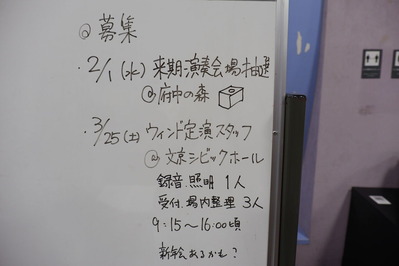 ◎募集
・2/1(水)来期演奏会場抽選
@府中の森
・3/25(土)ウィンド定演スタッフ
@文京シビックホール
録音.照明 1人
受付.場内整理 3人
9:15〜16:00頃